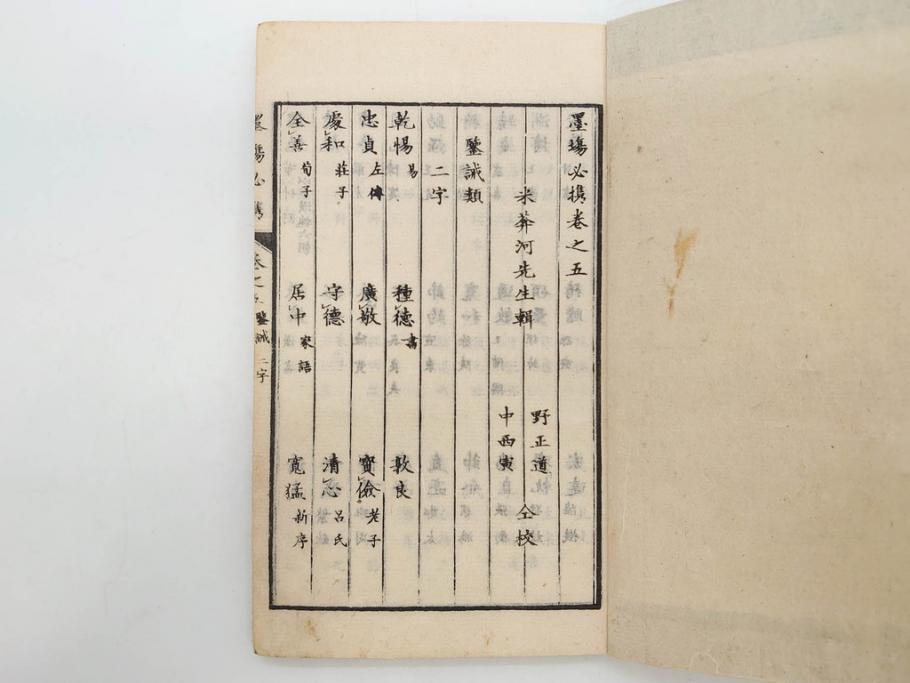 墨場必携卷之五
米葊河先生輯
野正道
中西寅
仝校
鑒誡類
二字
乾惕 易 種德 書 敦良
忠貞 左傳 廣敬 寶儉 老子
處和 莊子 守德 清心 呂氏
全善 荀子 居中 家語 寬猛 新序
墨場必携 卷之五 鑒誡 二字